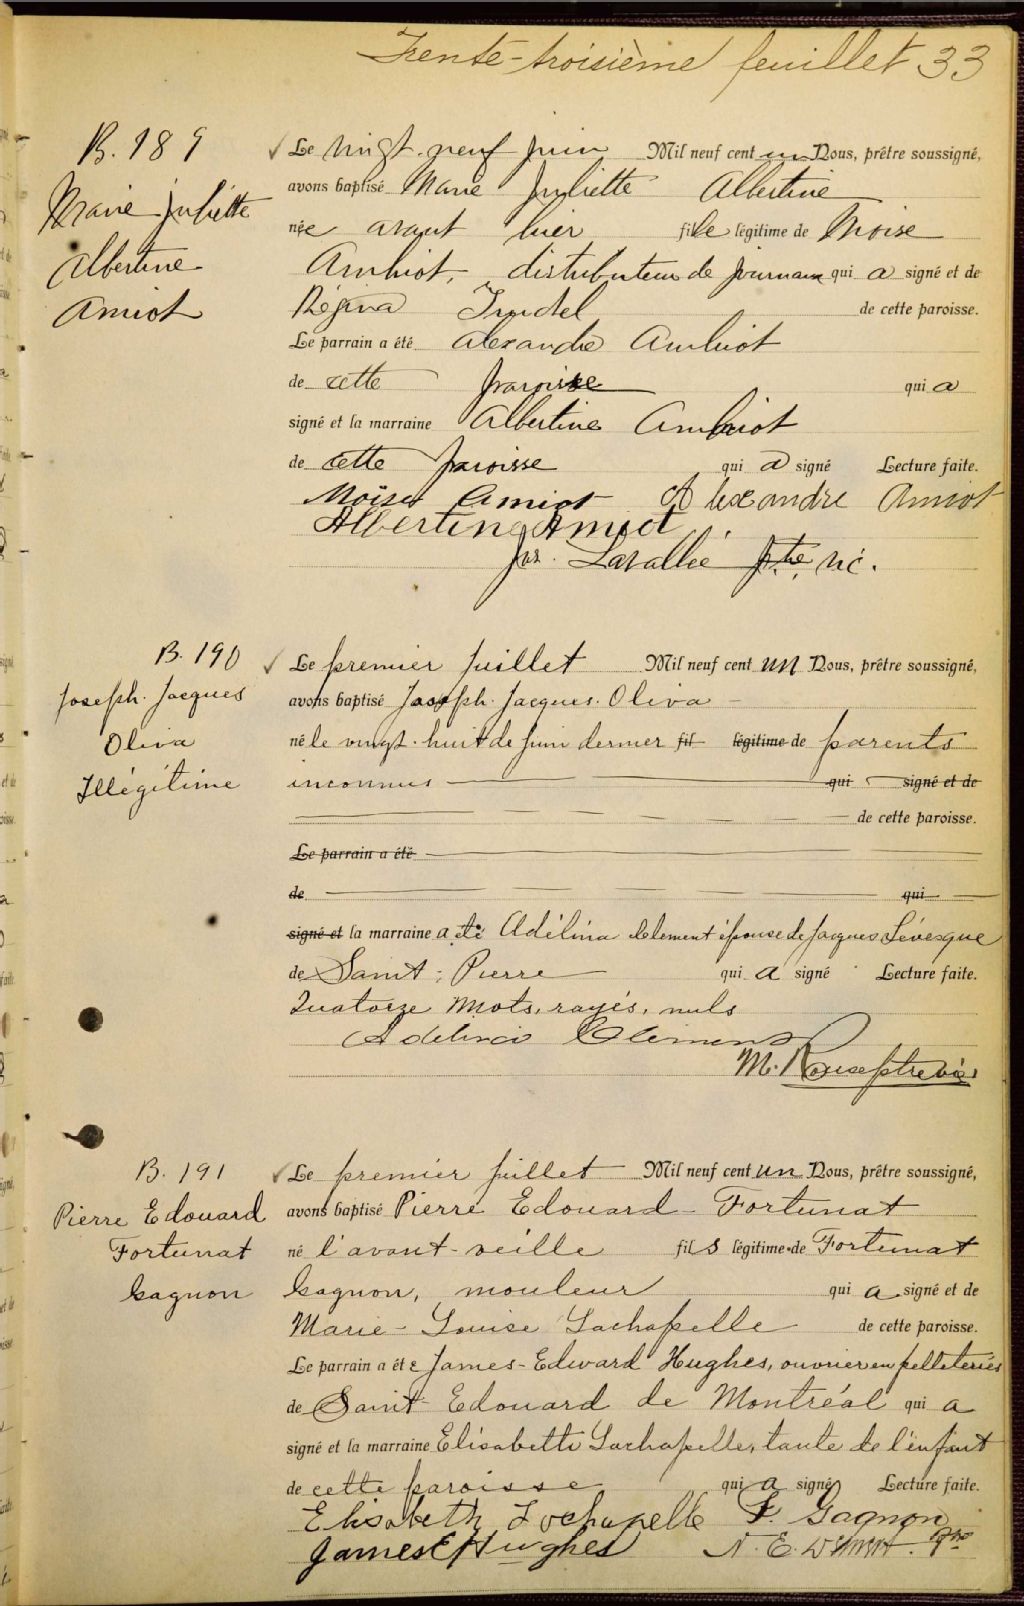 Trente-troisième feuillet 33
B. 189
Marie Juliette
Albertine
Amiot
Le vingt-neuf juin Mil neuf cent un Nous, prêtre soussigné,
avons baptisé Marie Juliette Albertine
née avant hier fille légitime de Moise
Amhiot, distributeur de journaux qui a signé et de
Régina Trudel de cette paroisse.
Le parrain a été Alexandre Amhiot
de cette paroisse qui a
signé et la marraine Albertine Amhiot
de cette paroisse qui a signé Lecture faite.
Moïse Amiot Alexandre Amiot
Albertine Amiot
Jos. Lavallée ptre, vic.
B. 190
Joseph. Jacques
Oliva
Illégitime
Le premier juillet Mil neuf cent un Nous, prêtre soussigné,
avons baptisé Joseph. Jacques. Oliva
né le vingt-huit de juin dernier fil légitime de parents
inconnus qui signé et de
de cette paroisse.
Le parrain a été
de qui
signé et la marraine a été Adélina Clément épouse de Jacques Lévesque
de Saint-Pierre qui a signé Lecture faite.
Quatorze mots, rayés, nuls
Adelina Clement
M. ptre vic
B. 191
Pierre Edouard
Fortunat
Gagnon
Le premier juillet Mil neuf cent un Nous, prêtre soussigné,
avons baptisé Pierre Edouard Fortunat
né l'avant-veille fils légitime de Fortunat
Gagnon, mouleur qui a signé et de
Marie-Louise Lachapelle de cette paroisse.
Le parrain a été James-Edward Hughes, ouvrier en pelleteries
de Saint-Edouard de Montréal qui a
signé et la marraine Elisabeth Lachapelle, tante de l'enfant
de cette paroisse qui a signé Lecture faite.
Elisabeth Lachapelle F. Gagnon
James E Hughes N. E. Ptre